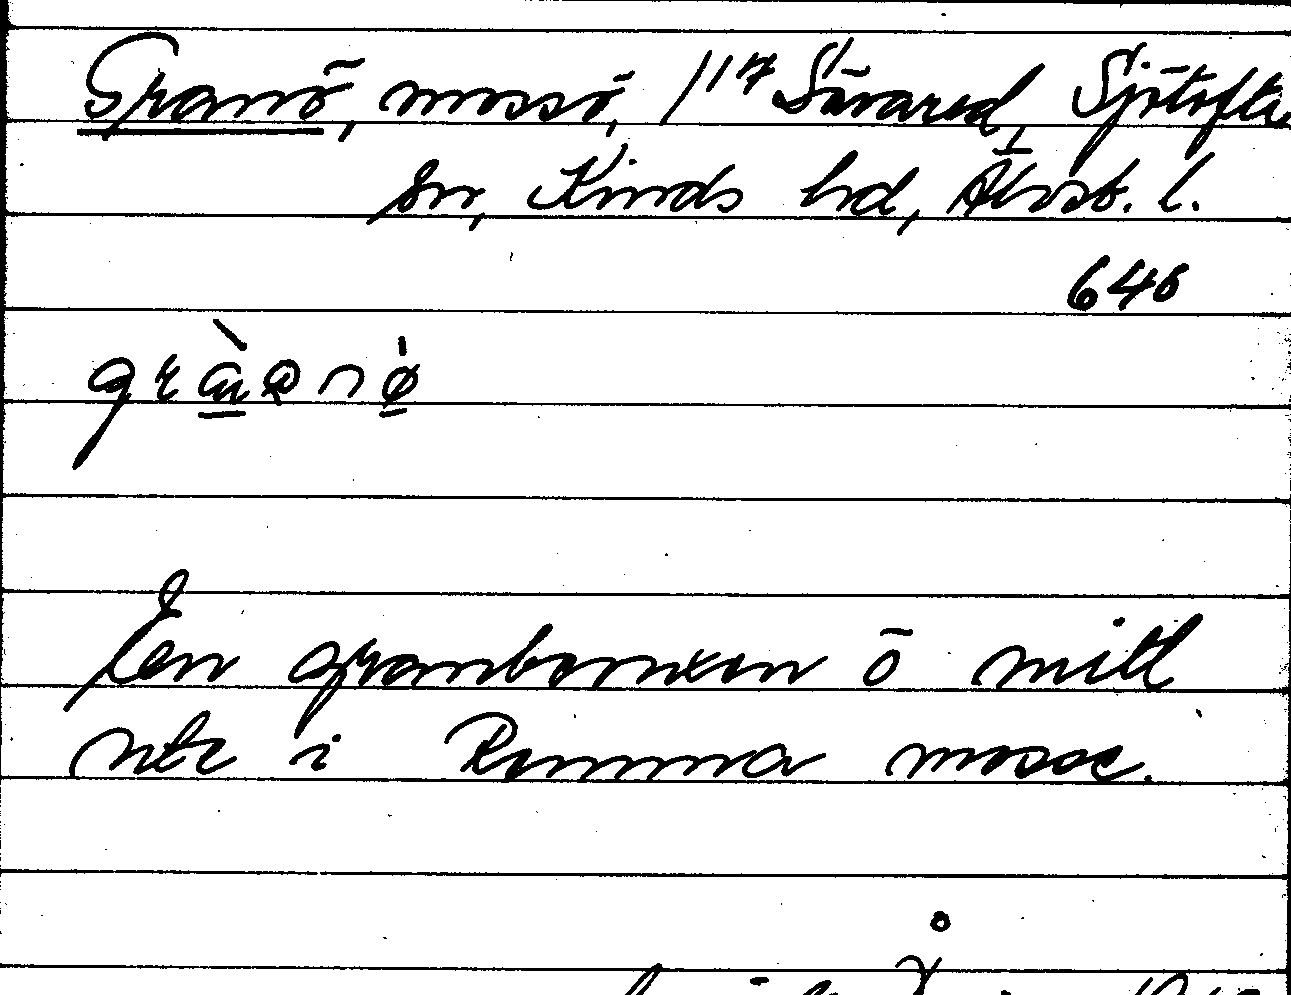 Granö, mossö, 1/17 Sävared, Sjötofta
sn, Kinds hd, Älvsb. l.
646
En granbevuxen ö mitt
ute i Ramma mosse.